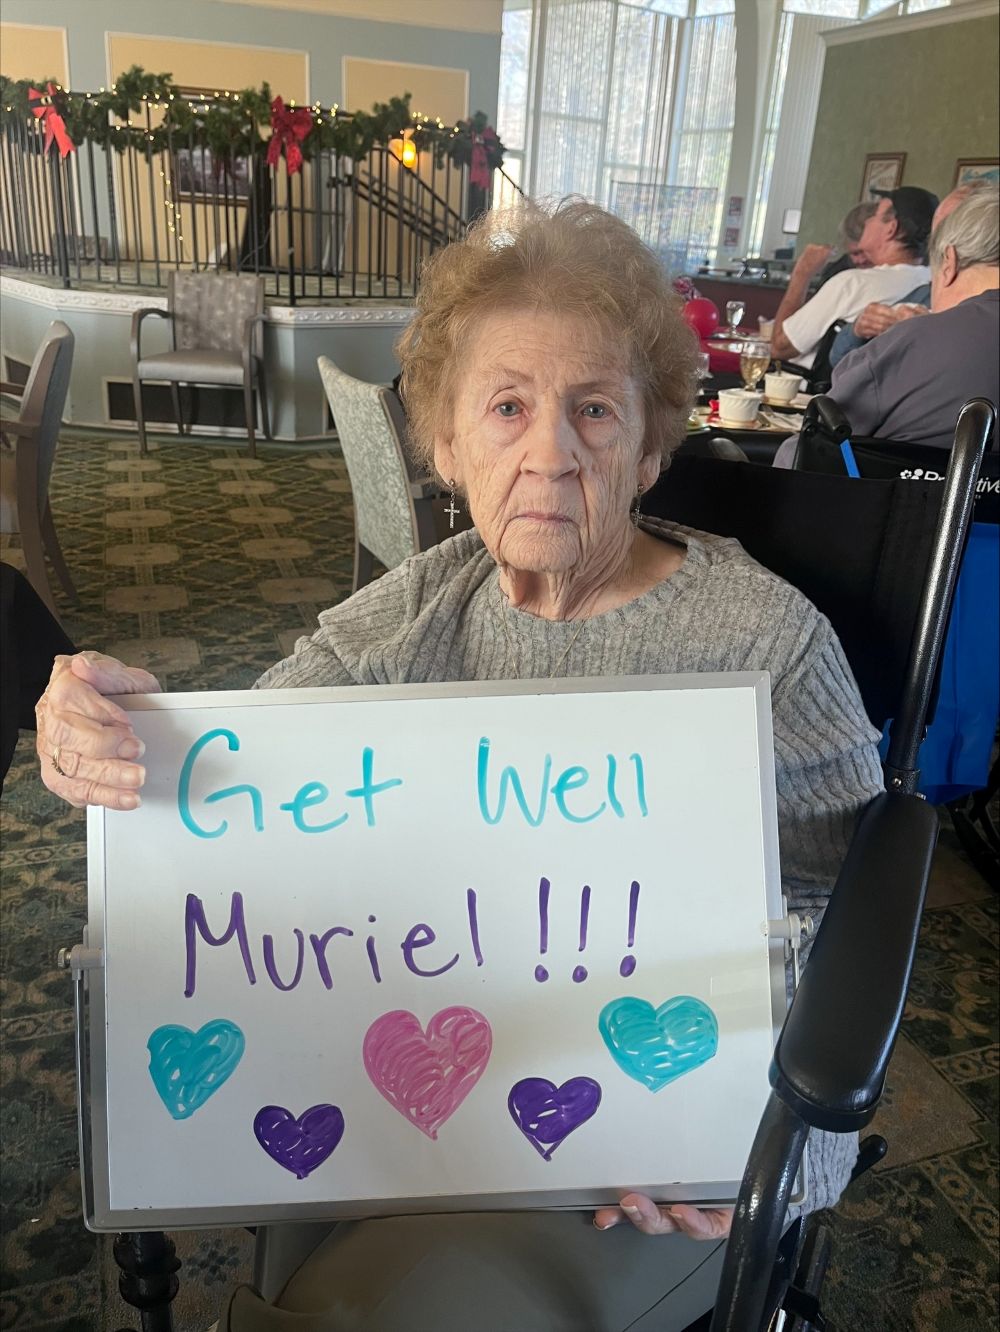 Get Well
Muriel !!!